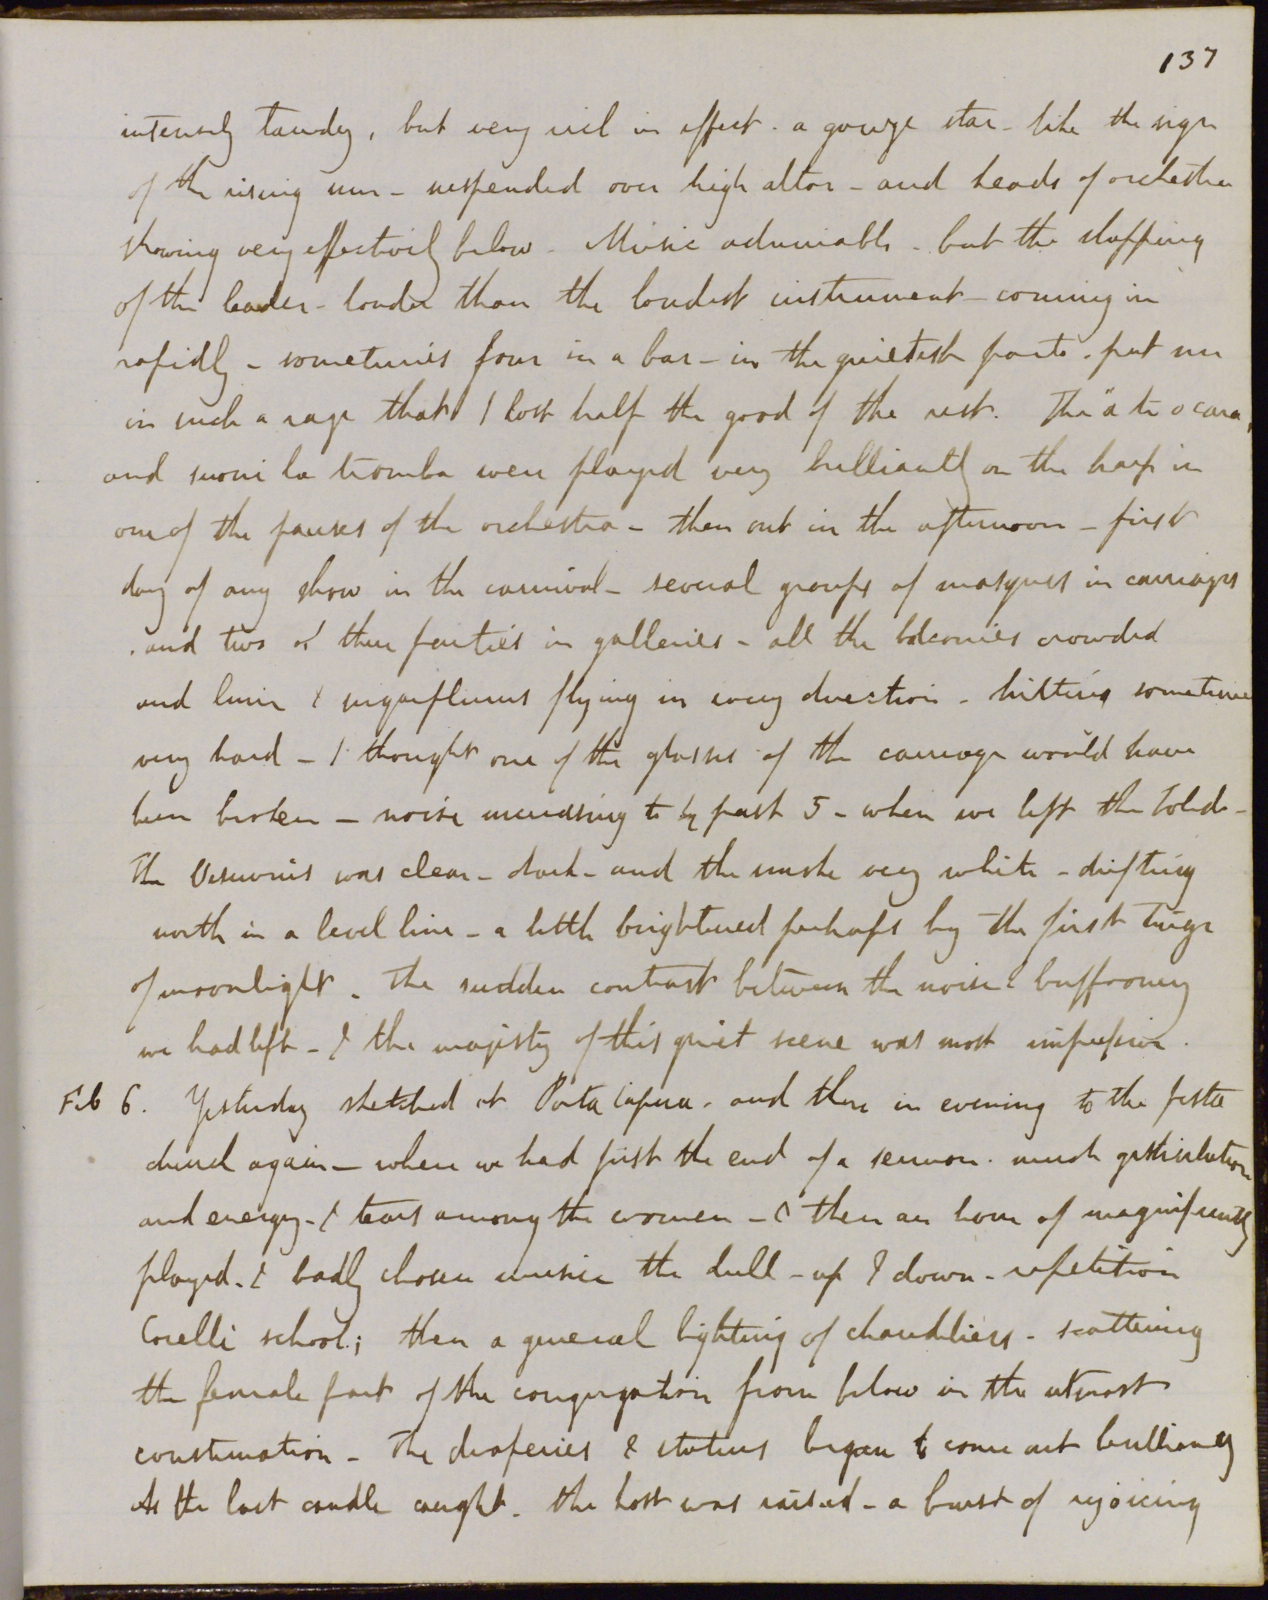 137
intensely tawdry, but very rich in effect. a gauze star - like the sign
of the rising sun - suspended over high altar - and heads of orchestra
showing very effectively below. Music admirable - but the slapping
of the leader - louder than the loudest instrument - coming in
rapidly - sometimes four in a bar - in the quietest parts. put me
in such a rage that I lost half the good of the rest. The "a te o cara,
and suoni la tromba were played very brilliantly on the harp in
one of the pauses of the orchestra - then out in the afternoon - first
day of any show in the carnival - several groups of masques in carriages
and two or three parties in galleries - all the balconies crowded
and lime & sugarplums flying in every direction - hitting sometimes
very hard - I thought one of the glasses of the carriage would have
been broken - noise increasing to ½ past 5 - when we left the Toledo -
The Vesuvius was clear - dark - and the smoke very white - drifting
north in a level line - a little brightened perhaps by the first tinge
of moonlight. The sudden contrast between the noise & buffoonery
we had left - & the majesty of this quiet scene was most impressive.
Feb 6. Yesterday sketched at Porta Capua. and then in evening to the festa
church again - where we had just the end of a sermon. much gesticulation
and energy - & tears among the women - & then an hour of magnificently
played. & badly chosen music the dull - up & down - repetition
Corelli school; then a general lighting of chandeliers - scattering
the female part of the congregation from below in the utmost
consternation - The draperies & statues began to come out brilliantly
As the last candle caught. the host was raised - a burst of rejoicing